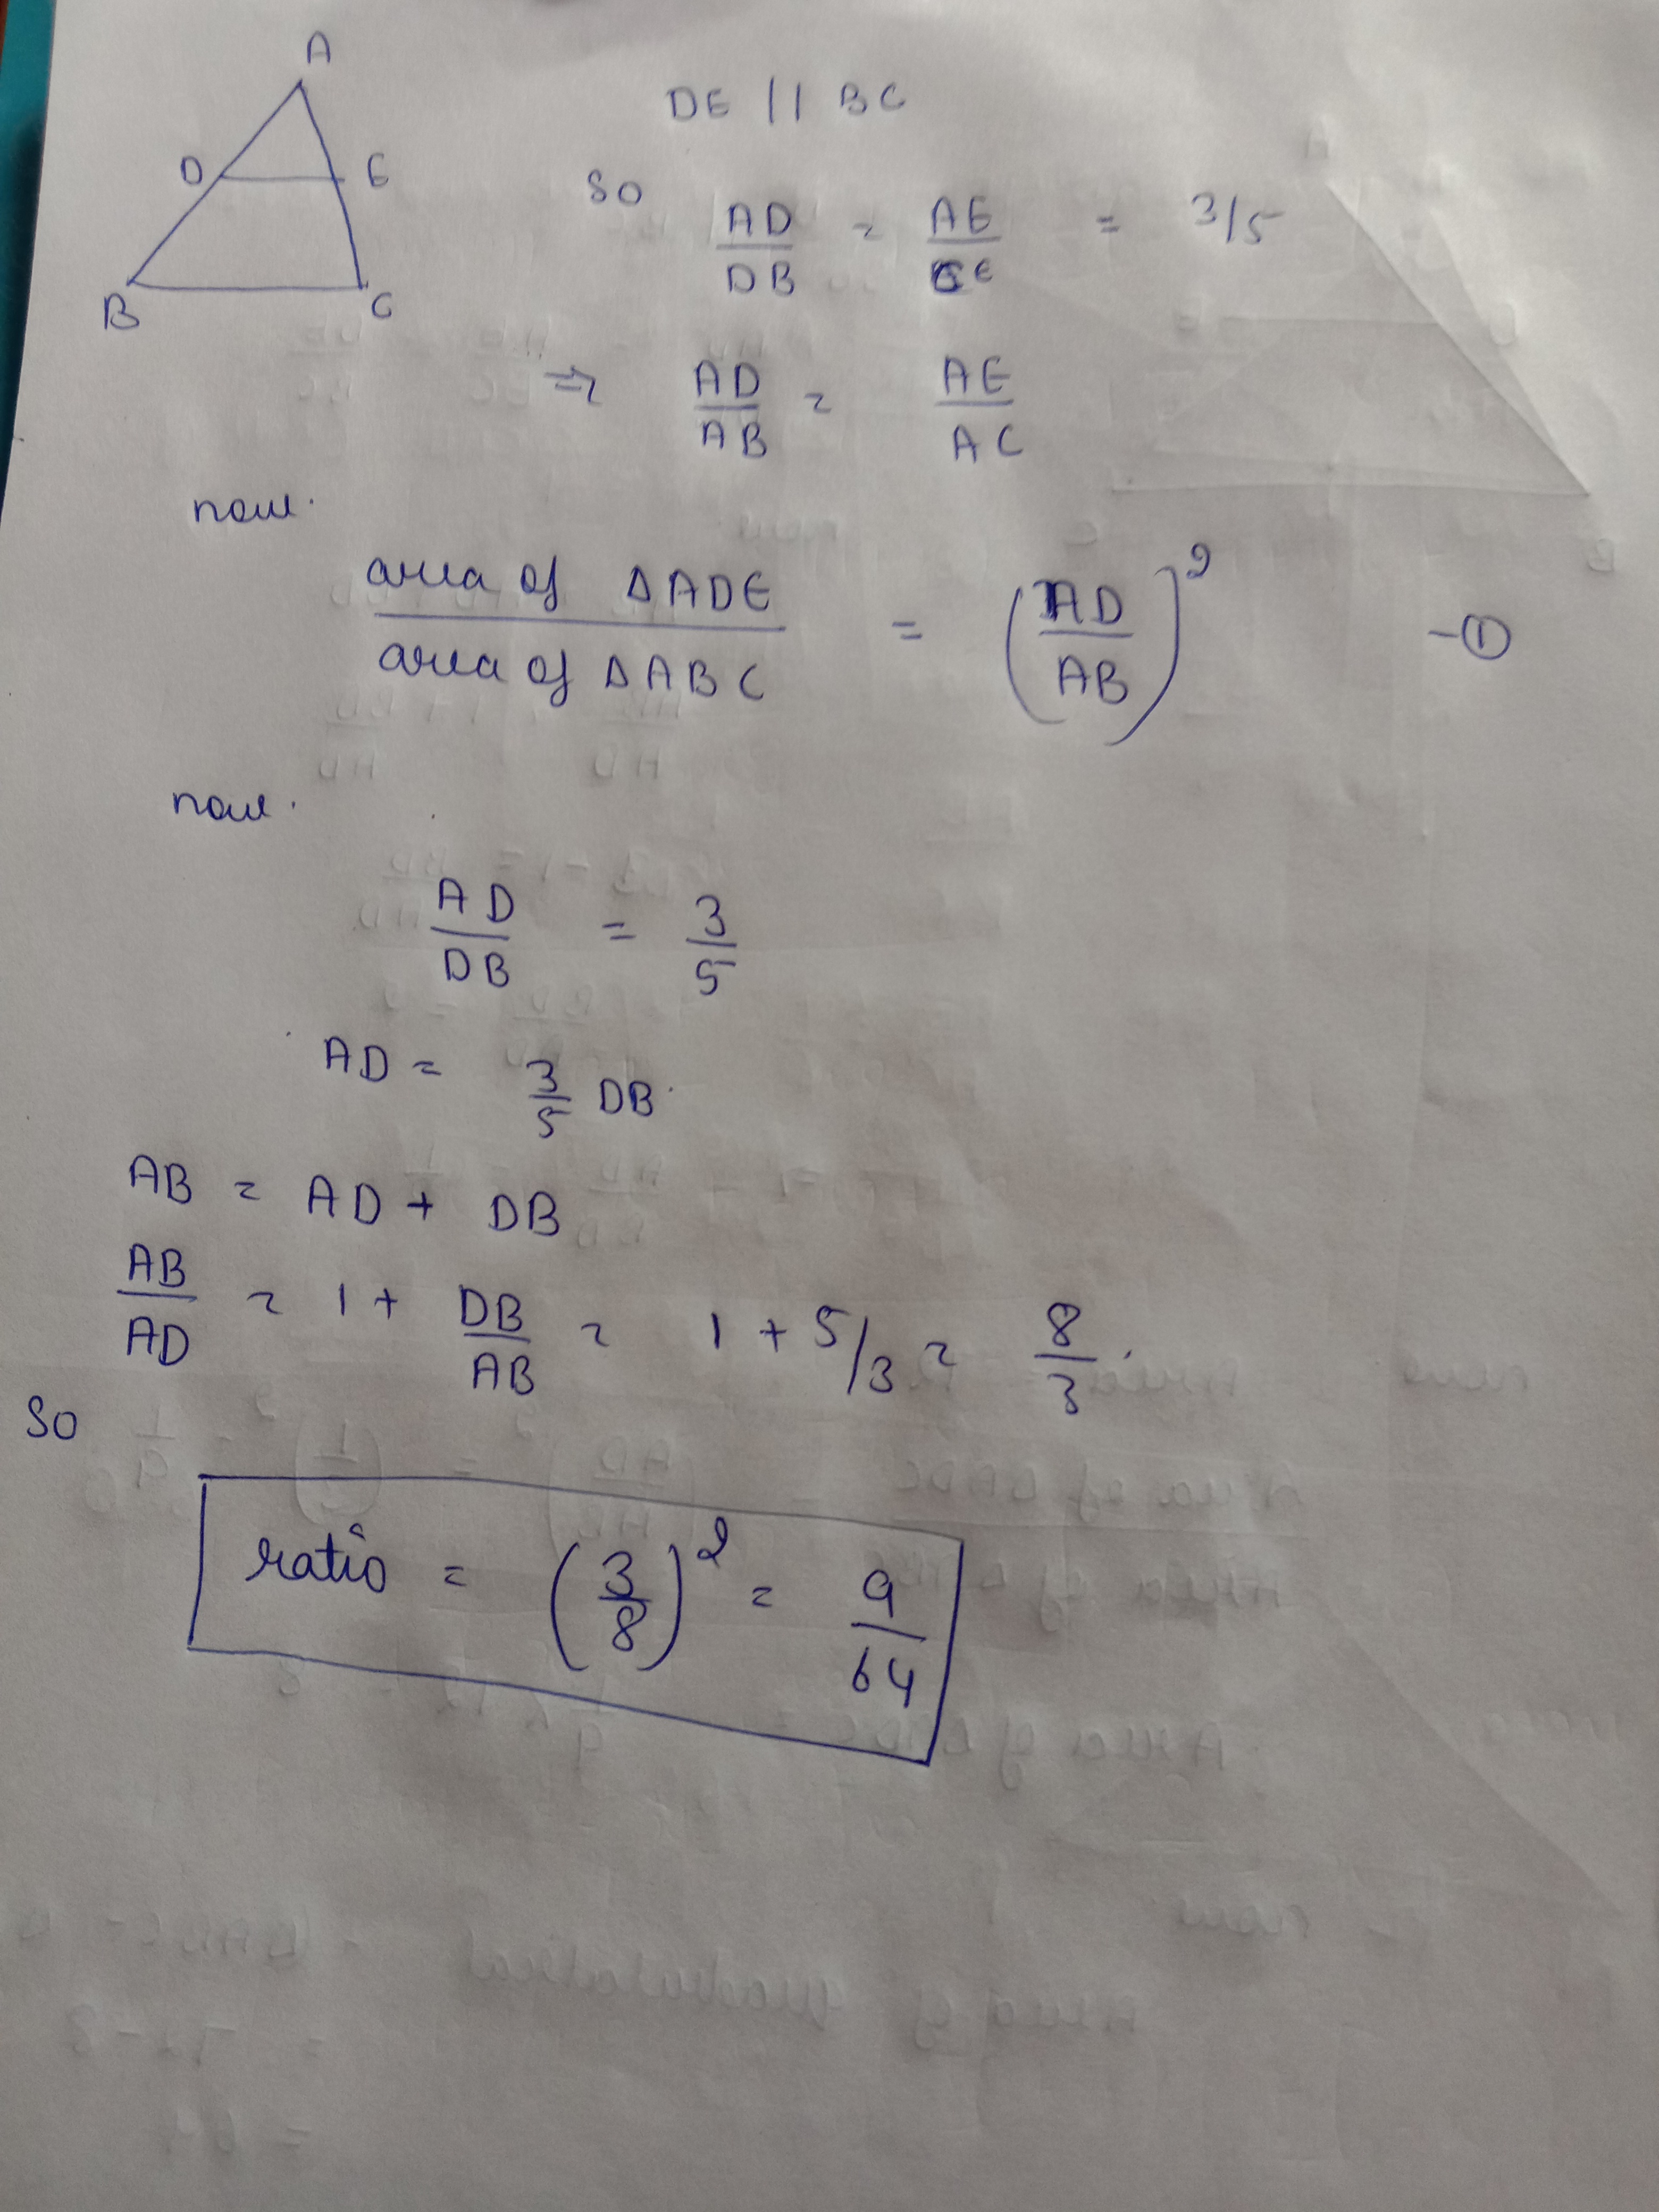 A
DE || BC
D E
so AD/DB = AE/CE = 3/5
B C
⇒ AD/AB = AE/AC
now.
area of ΔADE / area of ΔABC = (AD/AB)² -①
now.
AD/DB = 3/5
AD = 3/5 DB
AB = AD + DB
AB/AD = 1 + DB/AB = 1 + 5/3 = 8/3.
so
ratio = (3/8)² = 9/64